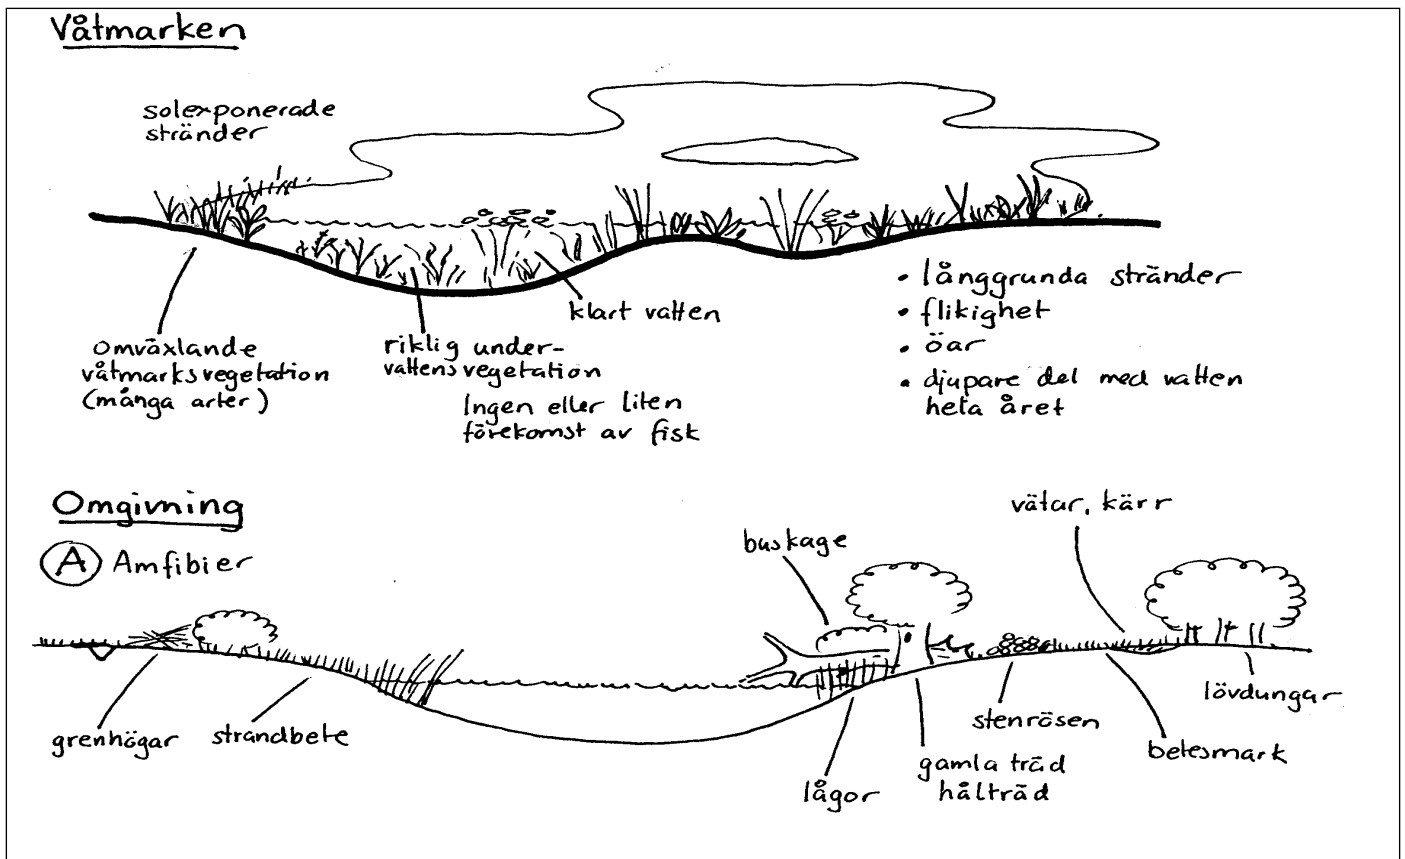 Våtmarken
solexponerade
stränder
omväxlande
våtmarksvegetation
(många arter)
riklig under-
vattensvegetation
Ingen eller liten
förekomst av fisk
klart vatten
• långgrunda stränder
• flikighet
• öar
• djupare del med vatten
hela året
Omgivning
A Amfibier
buskage
vätar, kärr
grenhögar
strandbete
lågor
gamla träd
hålträd
stenrösen
betesmark
lövdungar